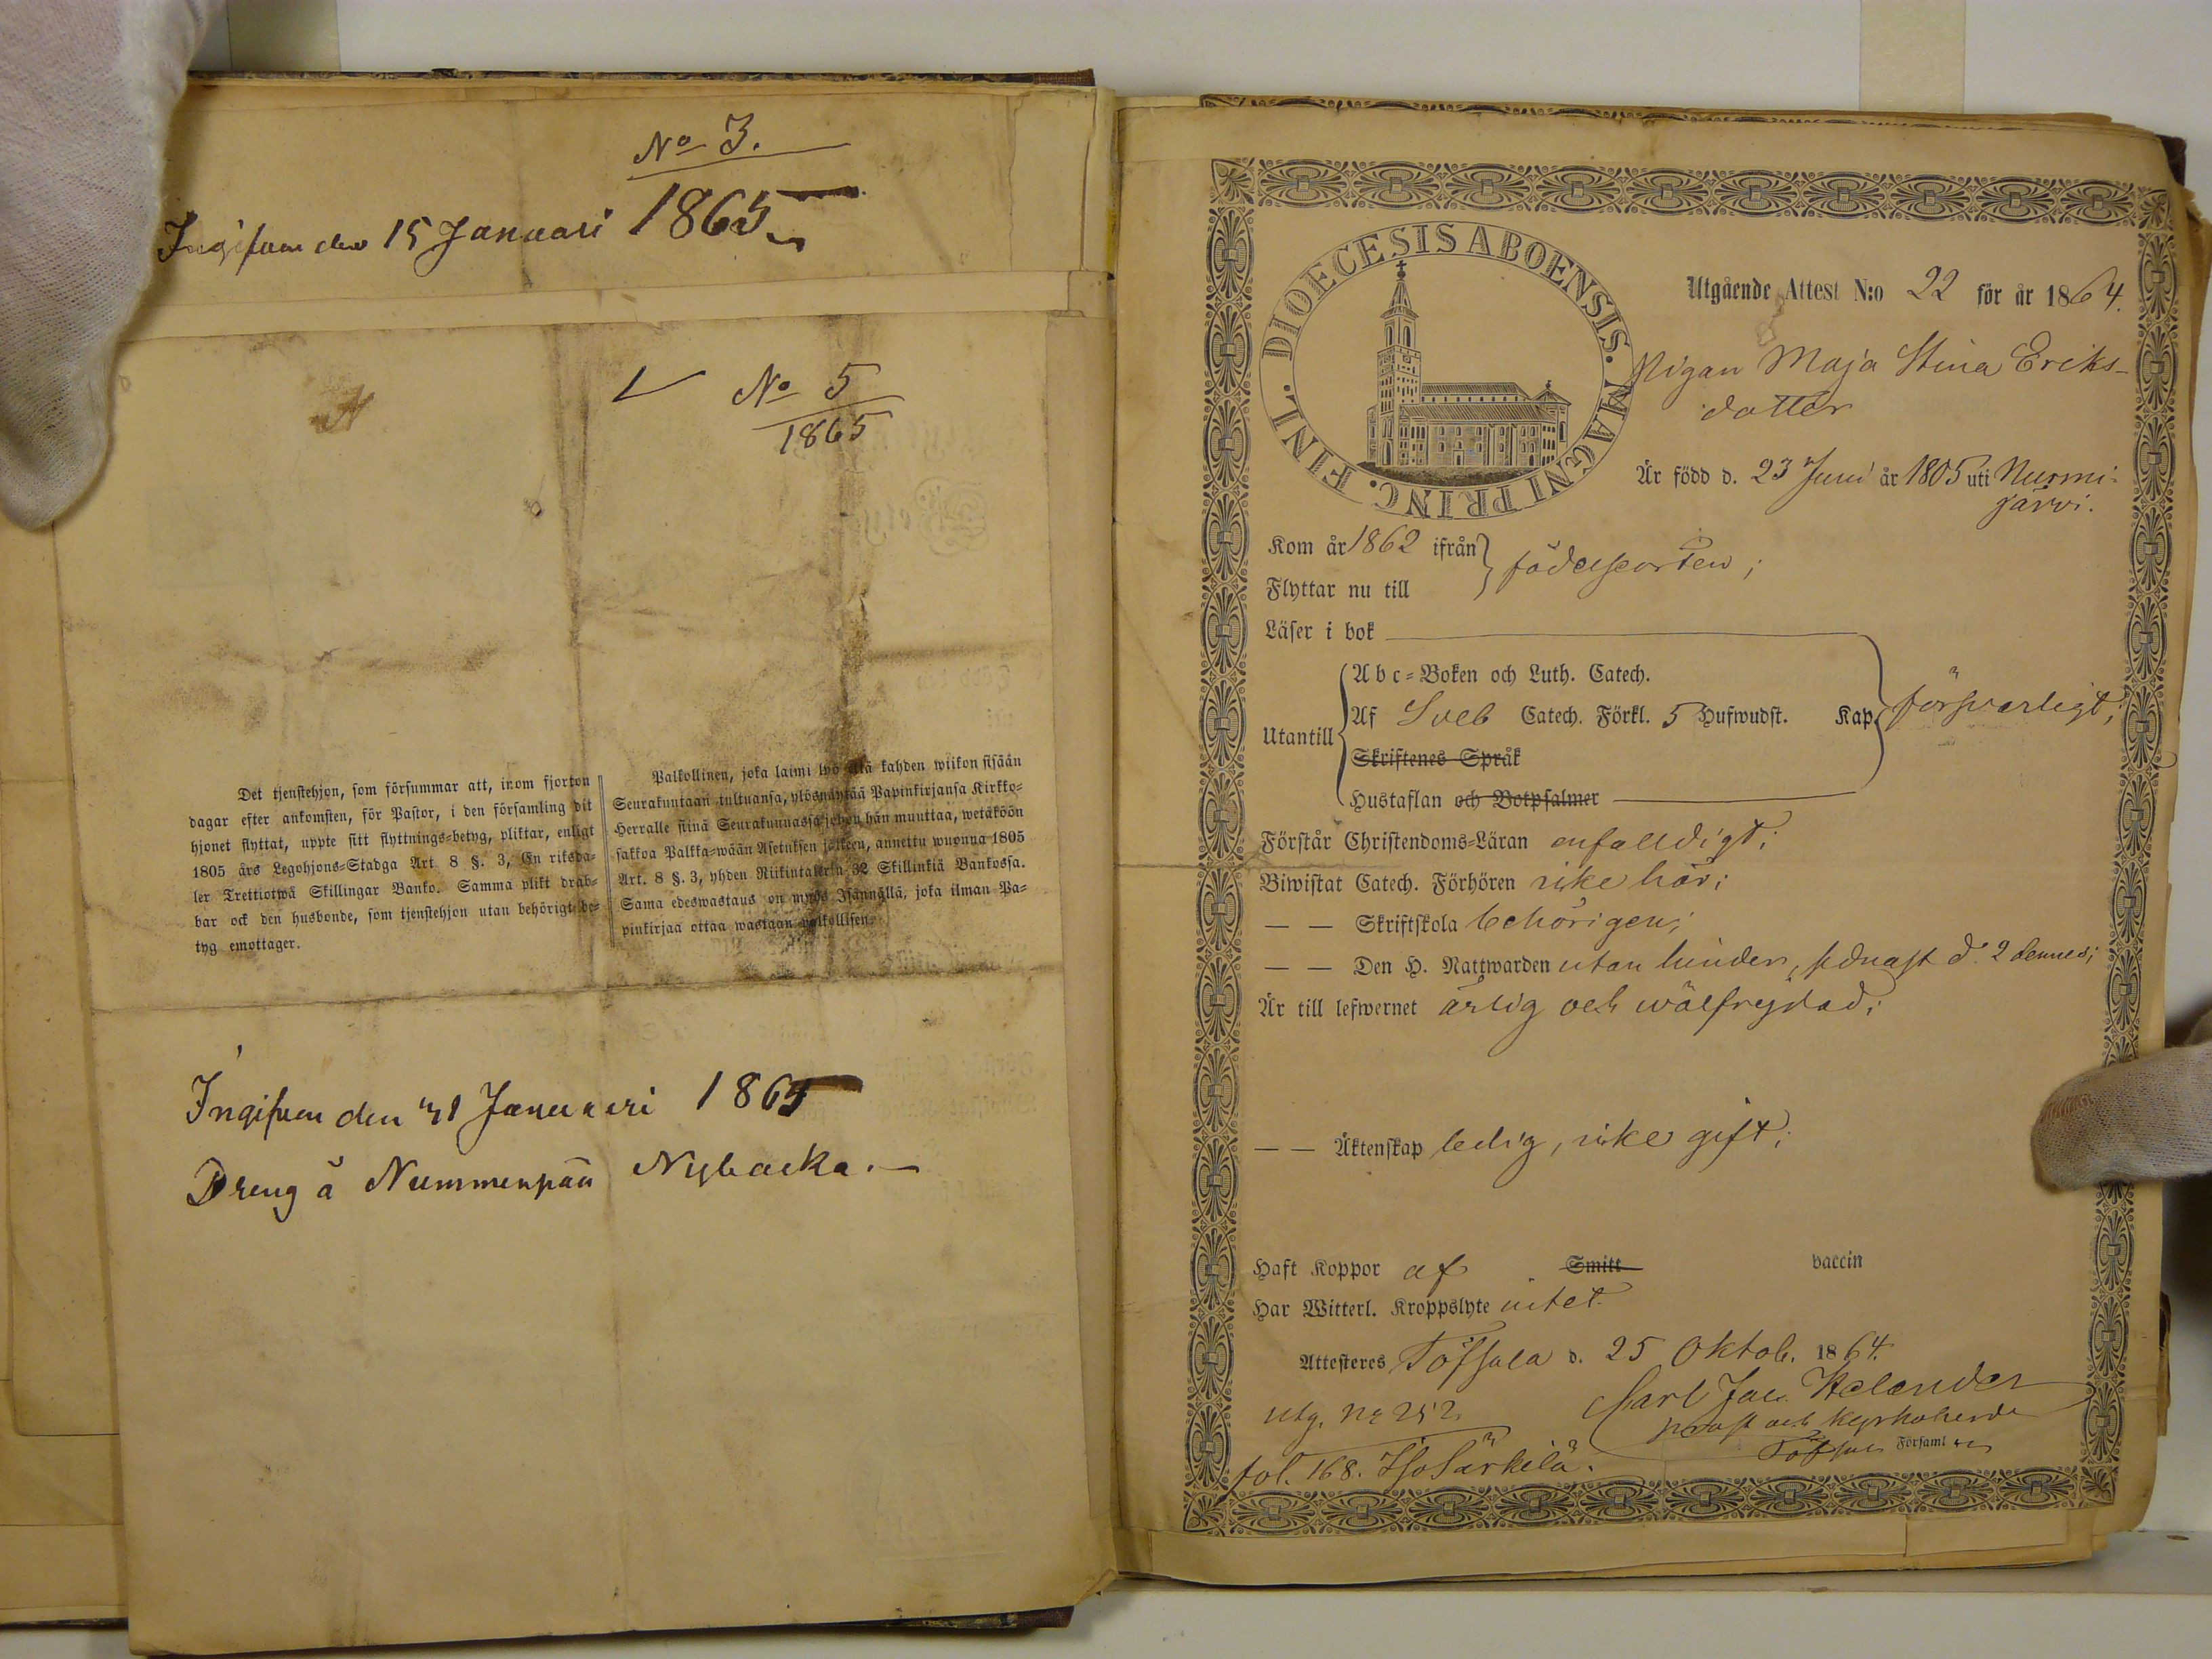 No 3.
Ingifven den 15 Januari 1865
No 5
1865
Det tjenstehjon, som försummar att, inom fjorton
dagar efter ankomsten, för Pastor, i den församling dit
hjonet flyttat, uppte sitt flyttnings-betyg, pliktar, enligt
1805 års Legohjons-Stadga Art. 8 §. 3, En riksda-
ler Trettiotwå Skillingar Banko. Samma plikt drab-
bar ock den husbonde, som tjenstehjon utan behörigt be-
tyg emottager.
Palkollinen, joka laimi kahden wiikon sisään
Seurakuntaan tultuansa, ylösnäyttää Papinkirjansa Kirkko-
Herralle siinä Seurakunnassa johon hän muuttaa, wetäköön
sakkoa Palkka-wään Asetuksen jälkeen, annettu wuonna 1805
Art. 8 §. 3, yhden Riikintalerin 32 Skillinkiä Bankossa.
Sama edeswastaus on myös Isännällä, joka ilman Pa-
pinkirjaa ottaa wastaan palkollisen.
Ingifven den 31 Januari 1865
Dreng å Nummenpää Nybacka.
DIOECESIS ABOENSIS. MAGNI PRINC. FINL.
Utgående Attest N:o 22 för år 1864.
Pigan Maja Stina Eriks-
dotter
Är född d. 23 Juni år 1805 uti Nurmi-
järvi.
Kom år 1862 ifrån
Flyttar nu till
födelseorten;
Läser i bok
Utantill
Abc-Boken och Luth. Catech.
Af Sveb Catech. Förkl. 5 Hufwudst. Kap
försvarligt;
Skriftenes Språk
Hustaflan och Botpsalmer
Förstår Christendoms-Läran enfalldigt;
Biwistat Catech. Förhören icke här;
— — Skriftskola behörigen;
— — Den H. Nattwarden utan hinder, sednast d. 2 dennes;
Är till lefwernet ärlig och wälfrejdad;
— — Äktenskap ledig, icke gift;
Haft Koppor af Smitt vaccin
Har Witterl. Kroppslyte intet.
Attesteres Töfsala d. 25 Oktob. 1864.
Carl Jac. Helander
utg. No 252.
prost och kyrkoherde
Töfsala Församl
fol. 168. Iso Särkilä.